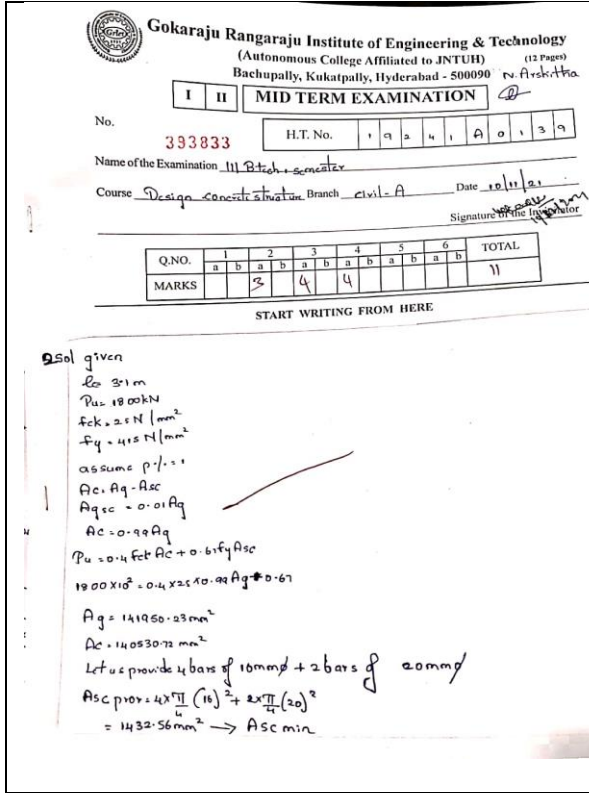 Gokaraju Rangaraju Institute of Engineering & Technology
(Autonomous College Affiliated to JNTUH)
(12 Pages)
Bachupally, Kukatpally, Hyderabad - 500090
I II MID TERM EXAMINATION
No. 393833
H.T. No. 1 9 2 4 1 A 0 1 3 9
Name of the Examination III B.tech, semester
Course Design concrete structure Branch civil-A Date 10/11/21
Signature of the
Q.NO. 1 2 3 4 5 6 TOTAL
a b a b a b a b a b a b
MARKS 3 4 4 11
START WRITING FROM HERE
2Sol given
l= 3.1m
Pu= 1800kN
fck = 25N/mm²
fy = 415N/mm²
assume p%=1
Ac = Ag - Asc
Agsc = 0.01Ag
Ac = 0.99Ag
Pu = 0.4 fck Ac + 0.67fy Asc
1800 x10² = 0.4 x25 x0.99 Ag + 0.67
Ag = 141950.23mm²
Ac = 140530.72 mm²
Let us provide 4 bars of 16mmø + 2 bars of 20mmø
Asc prov = 4xπ/4 (16)² + 2xπ/4(20)²
= 1432.56mm² → Asc min